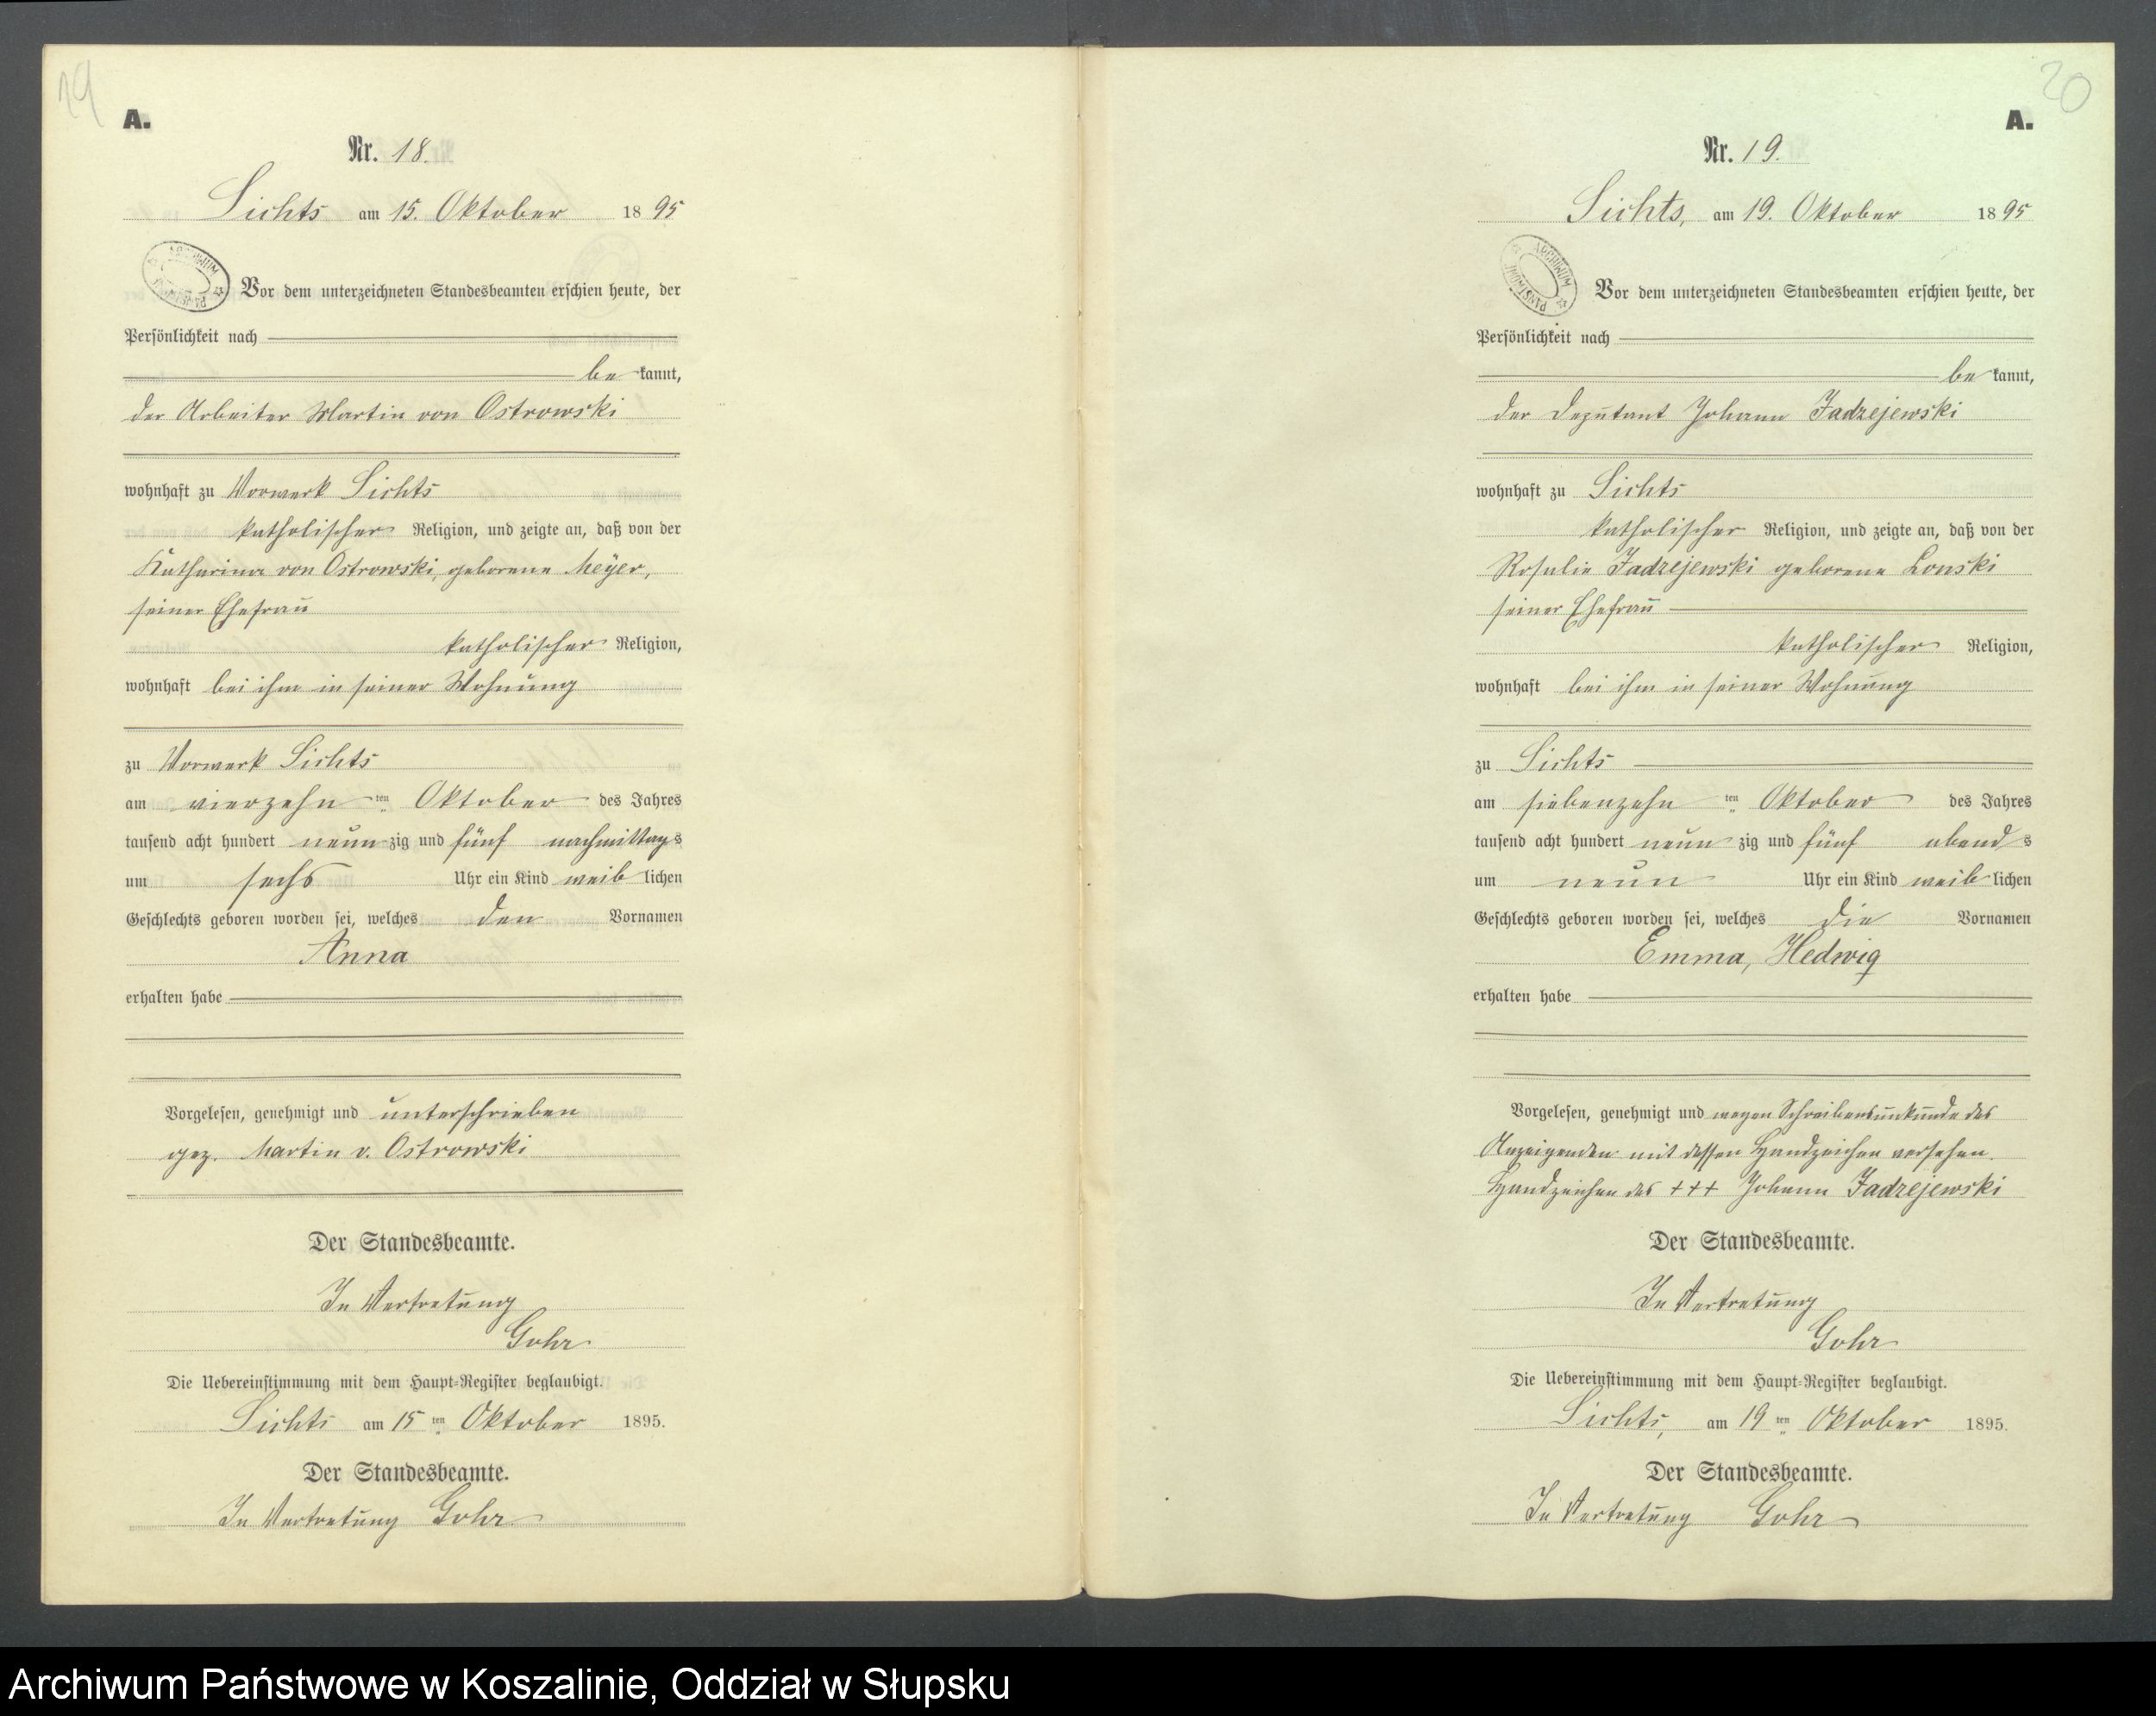 19
A.
Nr. 18.
Sichts am 15. Oktober 1895
ARCHIWUM PAŃSTWOWE
Vor dem unterzeichneten Standesbeamten erschien heute, der
Persönlichkeit nach
be kannt,
der Arbeiter Martin von Ostrowski
wohnhaft zu Vorwerk Sichts
katholischer Religion, und zeigte an, daß von der
Katharina von Ostrowski, geborene Meyer,
seiner Ehefrau
katholischer Religion,
wohnhaft bei ihm in seiner Wohnung
zu Vorwerk Sichts
am vierzehn ten Oktober des Jahres
tausend acht hundert neun zig und fünf nachmittags
um sechs Uhr ein Kind weib lichen
Geschlechts geboren worden sei, welches den Vornamen
Anna
erhalten habe
Vorgelesen, genehmigt und unterschrieben
gez. Martin v. Ostrowski
Der Standesbeamte.
In Vertretung
Gohr
Die Uebereinstimmung mit dem Haupt-Register beglaubigt.
Sichts am 15 ten Oktober 1895.
Der Standesbeamte.
In Vertretung Gohr
20
A.
Nr. 19.
Sichts, am 19. Oktober 1895
ARCHIWUM PAŃSTWOWE
Vor dem unterzeichneten Standesbeamten erschien heute, der
Persönlichkeit nach
be kannt,
der Deputant Johann Jadzejewski
wohnhaft zu Sichts
katholischer Religion, und zeigte an, daß von der
Rosalie Jadzejewski geborene Lonski
seiner Ehefrau
katholischer Religion,
wohnhaft bei ihm in seiner Wohnung
zu Sichts
am siebenzehn ten Oktober des Jahres
tausend acht hundert neun zig und fünf abend s
um neun Uhr ein Kind weib lichen
Geschlechts geboren worden sei, welches die Vornamen
Emma, Hedwig
erhalten habe
Vorgelesen, genehmigt und wegen Schreibensunkunde des
Anzeigenden mit dessen Handzeichen versehen.
Handzeichen des +++ Johann Jadzejewski
Der Standesbeamte.
In Vertretung
Gohr
Die Uebereinstimmung mit dem Haupt-Register beglaubigt.
Sichts, am 19 ten Oktober 1895.
Der Standesbeamte.
In Vertretung Gohr
Archiwum Państwowe w Koszalinie, Oddział w Słupsku